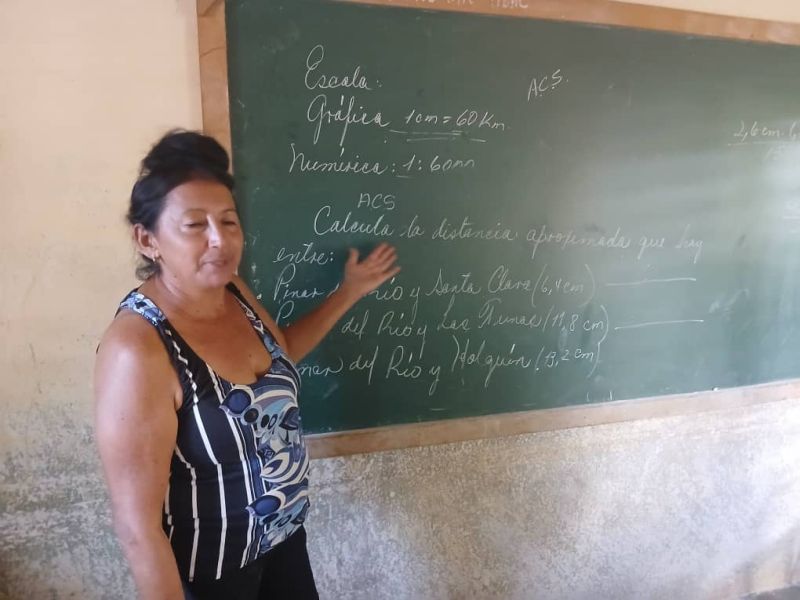 Escala:
A.C.S.
Gráfica 1cm = 60 Km.
2,6 cm.
Numérica: 1: 60
ACS
Calcula la distancia aproximada que hay
entre:
Pinar Río y Santa Clara (6,4 cm)
del Río y Las Tunas (11,8 cm)
del Río y Holguín (13,2 cm)